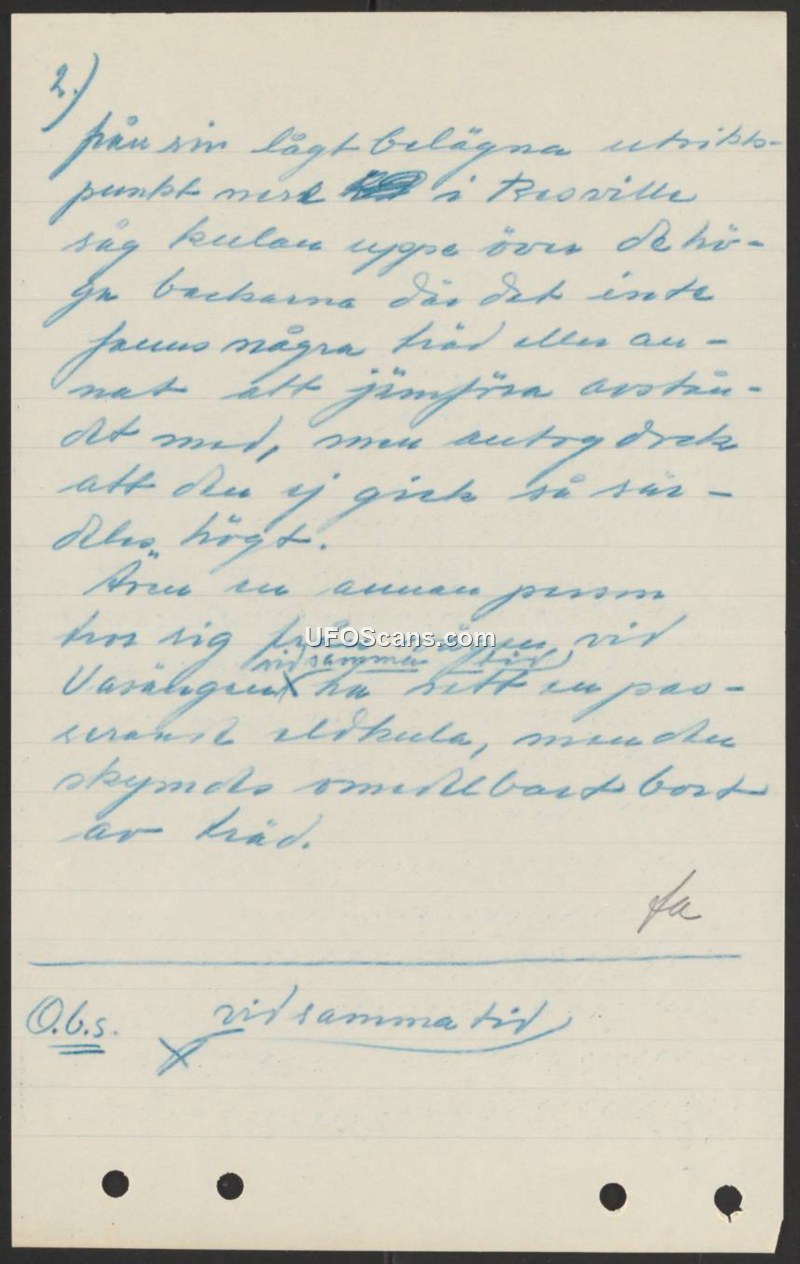 2.)
från sin lågt belägna utsikts-
punkt nere i Resville
såg kulan uppe över de hö-
ga backarna där det inte
fanns några träd eller an-
nat att jämföra avstån-
det med, men antog dock
att den ej gick så sär-
deles högt.
Även en annan person
tror sig vid
UFOScans.com
vid samma tid
Vasängen x ha sett en pas-
serande eldkula, men den
skymdes omedelbart bort
av träd.
O.b.s. vid samma tid
x